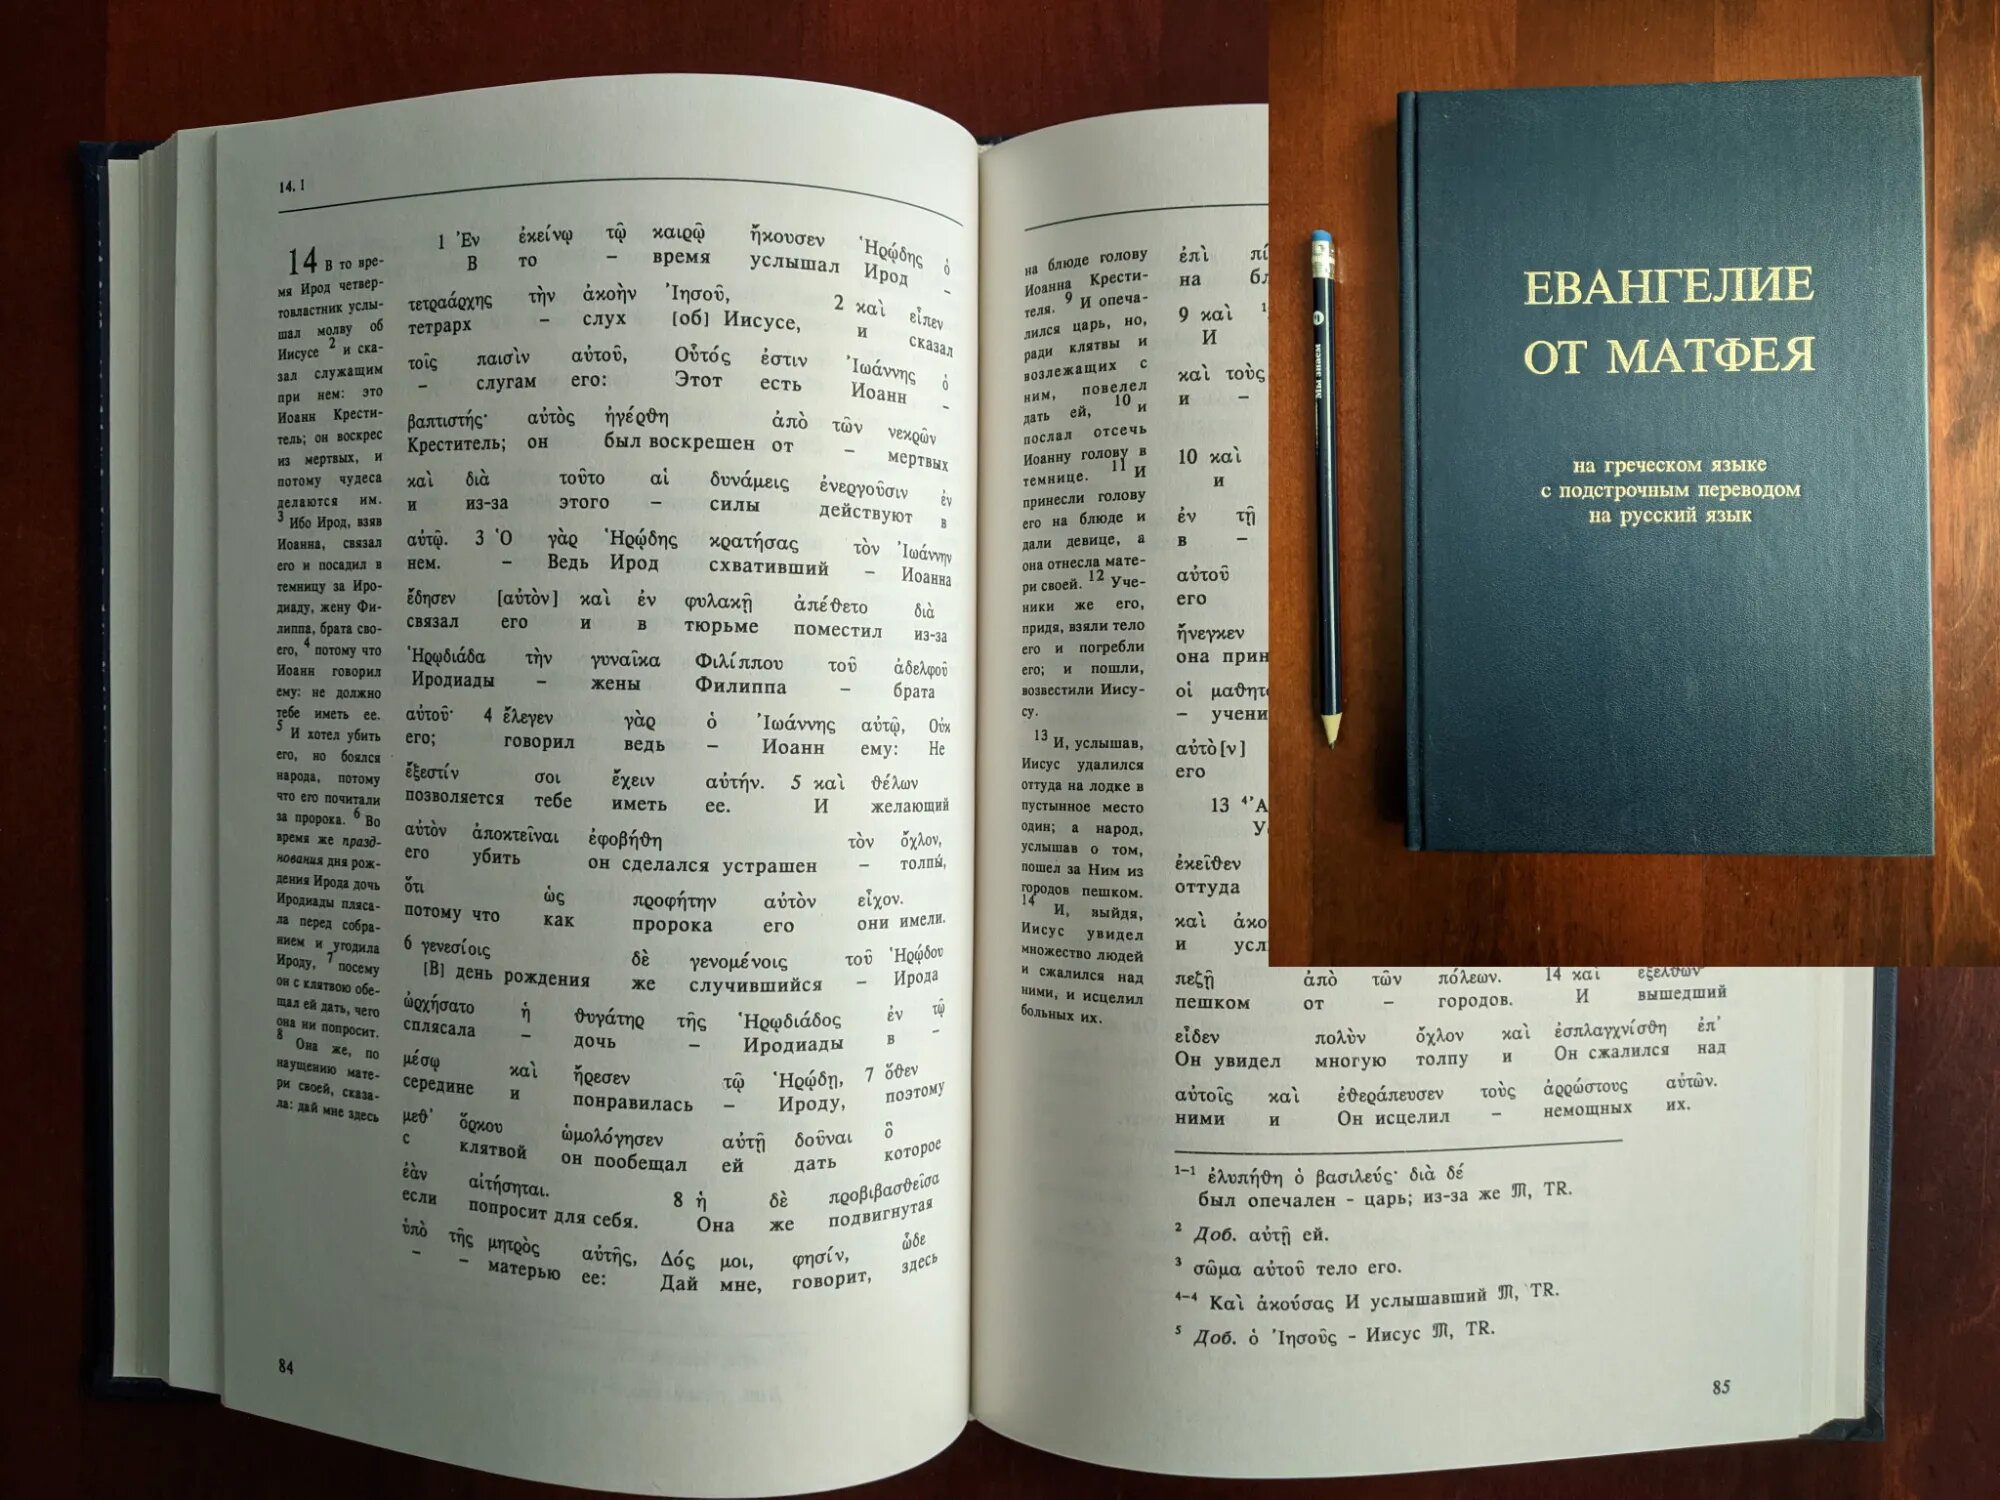 14. 1
14 В то вре-
мя Ирод четвер-
товластник услы-
шал молву об
Иисусе 2 и ска-
зал служащим
при нем: это
Иоанн Крести-
тель; он воскрес
из мертвых, и
потому чудеса
делаются им.
3 Ибо Ирод, взяв
Иоанна, связал
его и посадил в
темницу за Иро-
диаду, жену Фи-
липпа, брата сво-
его, 4 потому что
Иоанн говорил
ему: не должно
тебе иметь ее.
5 И хотел убить
его, но боялся
народа, потому
что его почитали
за пророка. 6 Во
время же празд-
нования дня рож-
дения Ирода дочь
Иродиады пляса-
ла перед собра-
нием и угодила
Ироду, 7 посему
он с клятвою обе-
щал ей дать, чего
она ни попросит.
8 Она же, по
наущению мате-
ри своей, сказа-
ла: дай мне здесь
1 Ἐν ἐκείνῳ τῷ καιρῷ ἤκουσεν Ἡρῴδης ὁ
В то – время услышал Ирод –
τετραάρχης τὴν ἀκοὴν Ἰησοῦ, 2 καὶ εἶπεν
тетрарх – слух [об] Иисусе, и сказал
τοῖς παισὶν αὐτοῦ, Οὗτός ἐστιν Ἰωάννης ὁ
– слугам его: Этот есть Иоанн –
βαπτιστής· αὐτὸς ἠγέρθη ἀπὸ τῶν νεκρῶν
Креститель; он был воскрешен от – мертвых
καὶ διὰ τοῦτο αἱ δυνάμεις ἐνεργοῦσιν ἐν
и из-за этого – силы действуют в
αὐτῷ. 3 Ὁ γὰρ Ἡρῴδης κρατήσας τὸν Ἰωάννην
нем. – Ведь Ирод схвативший – Иоанна
ἔδησεν [αὐτὸν] καὶ ἐν φυλακῇ ἀπέθετο διὰ
связал его и в тюрьме поместил из-за
Ἡρῳδιάδα τὴν γυναῖκα Φιλίππου τοῦ ἀδελφοῦ
Иродиады – жены Филиппа – брата
αὐτοῦ· 4 ἔλεγεν γὰρ ὁ Ἰωάννης αὐτῷ, Οὐκ
его; говорил ведь – Иоанн ему: Не
ἔξεστίν σοι ἔχειν αὐτήν. 5 καὶ θέλων
позволяется тебе иметь ее. И желающий
αὐτὸν ἀποκτεῖναι ἐφοβήθη τὸν ὄχλον,
его убить он сделался устрашен – толпы,
ὅτι ὡς προφήτην αὐτὸν εἶχον.
потому что как пророка его они имели.
6 γενεσίοις δὲ γενομένοις τοῦ Ἡρῴδου
[В] день рождения же случившийся – Ирода
ὠρχήσατο ἡ θυγάτηρ τῆς Ἡρῳδιάδος ἐν τῷ
сплясала – дочь – Иродиады в –
μέσῳ καὶ ἤρεσεν τῷ Ἡρῴδῃ, 7 ὅθεν
середине и понравилась – Ироду, поэтому
μεθ' ὅρκου ὡμολόγησεν αὐτῇ δοῦναι ὃ
с клятвой он пообещал ей дать которое
ἐὰν αἰτήσηται. 8 ἡ δὲ προβιβασθεῖσα
если попросит для себя. Она же подвигнутая
ὑπὸ τῆς μητρὸς αὐτῆς, Δός μοι, φησίν, ὧδε
– – матерью ее: Дай мне, говорит, здесь
84
на блюде голову
Иоанна Крести-
теля. 9 И опеча-
лился царь, но,
ради клятвы и
возлежащих с
ним, повелел
дать ей, 10 и
послал отсечь
Иоанну голову в
темнице. 11 И
принесли голову
его на блюде и
дали девице, а
она отнесла мате-
ри своей. 12 Уче-
ники же его,
придя, взяли тело
его и погребли
его; и пошли,
возвестили Иису-
су.
13 И, услышав,
Иисус удалился
оттуда на лодке в
пустынное место
один; а народ,
услышав о том,
пошел за Ним из
городов пешком.
14 И, выйдя,
Иисус увидел
множество людей
и сжалился над
ними, и исцелил
больных их.
ἐπὶ πί
на бл
9 καὶ 1
И
καὶ τοὺς
и –
10 καὶ
и
ἐν τῇ
в –
αὐτοῦ
его
ἤνεγκεν
она прин
οἱ μαθητ
– учени
αὐτὸ[ν]
его
13 4Ἀ
Ус
ἐκεῖθεν
оттуда
καὶ ἀκο
и усл
πεζῇ ἀπὸ τῶν πόλεων. 14 καὶ ἐξελθὼν
пешком от – городов. И вышедший
εἶδεν πολὺν ὄχλον καὶ ἐσπλαγχνίσθη ἐπ'
Он увидел многую толпу и Он сжалился над
αὐτοῖς καὶ ἐθεράπευσεν τοὺς ἀρρώστους αὐτῶν.
ними и Он исцелил – немощных их.
1–1 ἐλυπήθη ὁ βασιλεύς· διὰ δέ
был опечален – царь; из-за же 𝔐, TR.
2 Доб. αὐτῇ ей.
3 σῶμα αὐτοῦ тело его.
4–4 Καὶ ἀκούσας И услышавший 𝔐, TR.
5 Доб. ὁ Ἰησοῦς – Иисус 𝔐, TR.
85
Мы знаем
ЕВАНГЕЛИЕ
ОТ МАТФЕЯ
на греческом языке
с подстрочным переводом
на русский язык